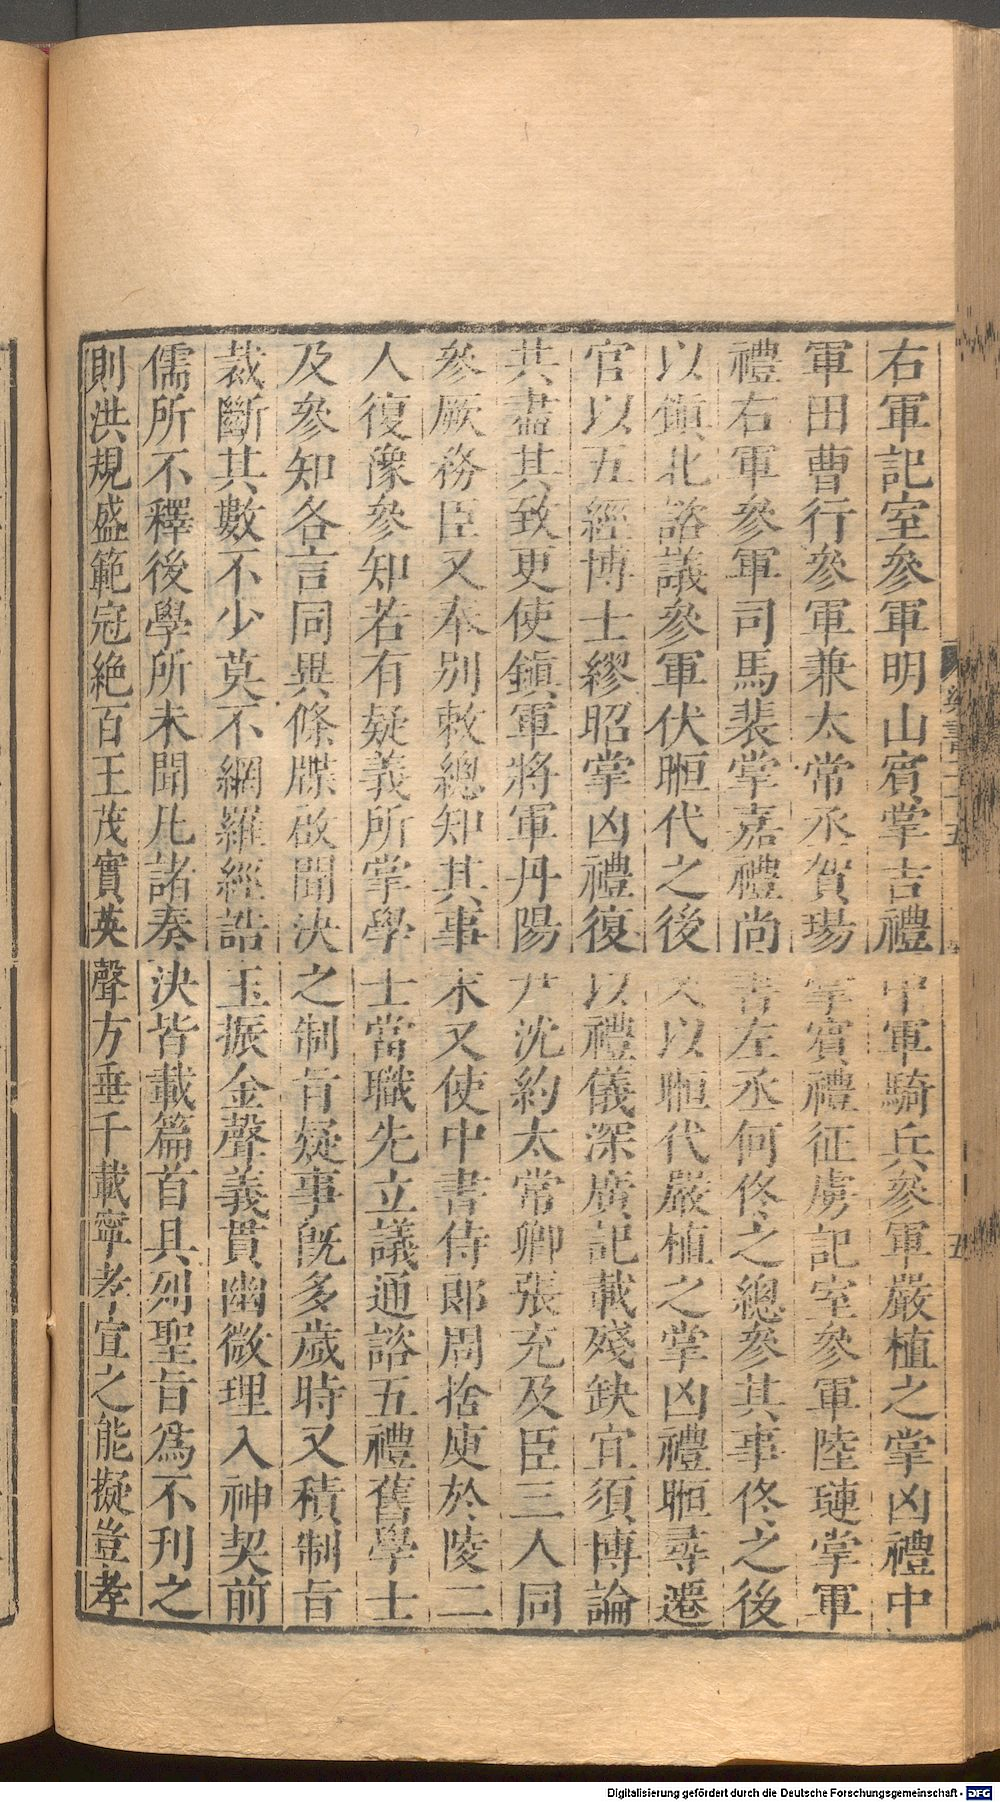 右軍記室參軍明山賓掌吉禮中軍騎兵參軍嚴植之掌凶禮中
軍田曹行參軍兼太常丞賀瑒掌賓禮征虜記室參軍陸璉掌軍
禮右軍參軍司馬裴掌嘉禮尚書左丞何佟之總參其事佟之後
以鎮北諮議參軍伏暅代之後又以暅代嚴植之掌凶禮暅尋遷
官以五經博士繆昭掌凶禮復以禮儀深廣記載殘缺宜須博論
共盡其致更使鎮軍將軍丹陽尹沈約太常卿張充及臣三人同
參厥務臣又奉別敕總知其事末又使中書侍郎周捨庾於陵二
人復豫參知若有疑義所掌學士當職先立議通諮五禮舊學士
及參知各言同異條牒啟聞決之制旨疑事既多歲時又積制旨
裁斷其數不少莫不網羅經誥玉振金聲義貫幽微理入神契前
儒所不釋後學所未聞凡諸奏決皆載篇首具列聖旨為不刊之
則洪規盛範冠絕百王茂實英聲方垂千載寧孝宣之能擬豈孝
梁書二十五
五
Digitalisierung gefördert durch die Deutsche Forschungsgemeinschaft - DFG